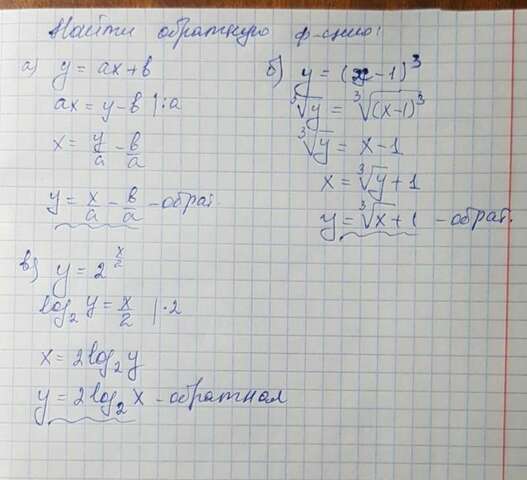 Найти обратную ф-цию:
а) y = ax + b
ax = y - b |:a
x = y/a - b/a
y = x/a - b/a - обрат.
б) y = (x - 1)³
³√y = ³√(x-1)³
³√y = x - 1
x = ³√y + 1
y = ³√x + 1 - обрат.
в) y = 2^(x/2)
log₂ y = x/2 |·2
x = 2log₂y
y = 2log₂x - обратная